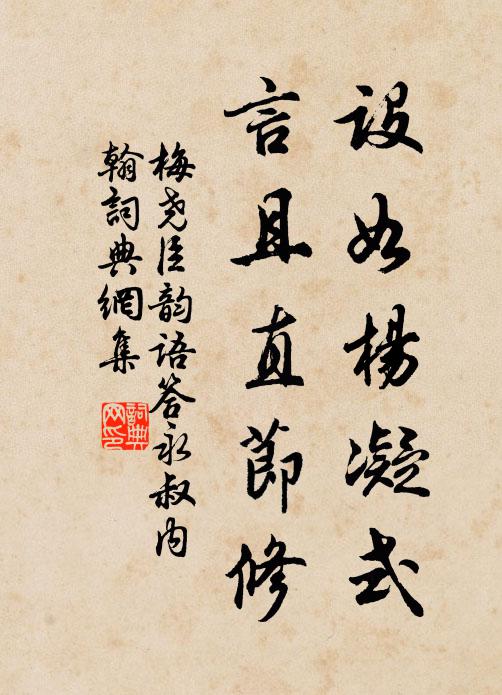 設如楊凝式
言且直節修
梅堯臣韵語答永叔内
翰詞典網集
詞典网印